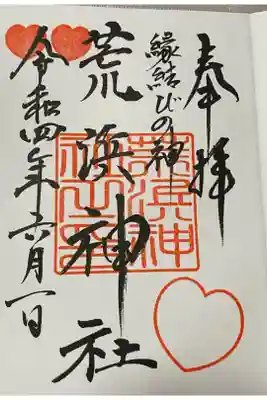 奉拝
縁結びの神
荒浜神社
令和四年六月一日